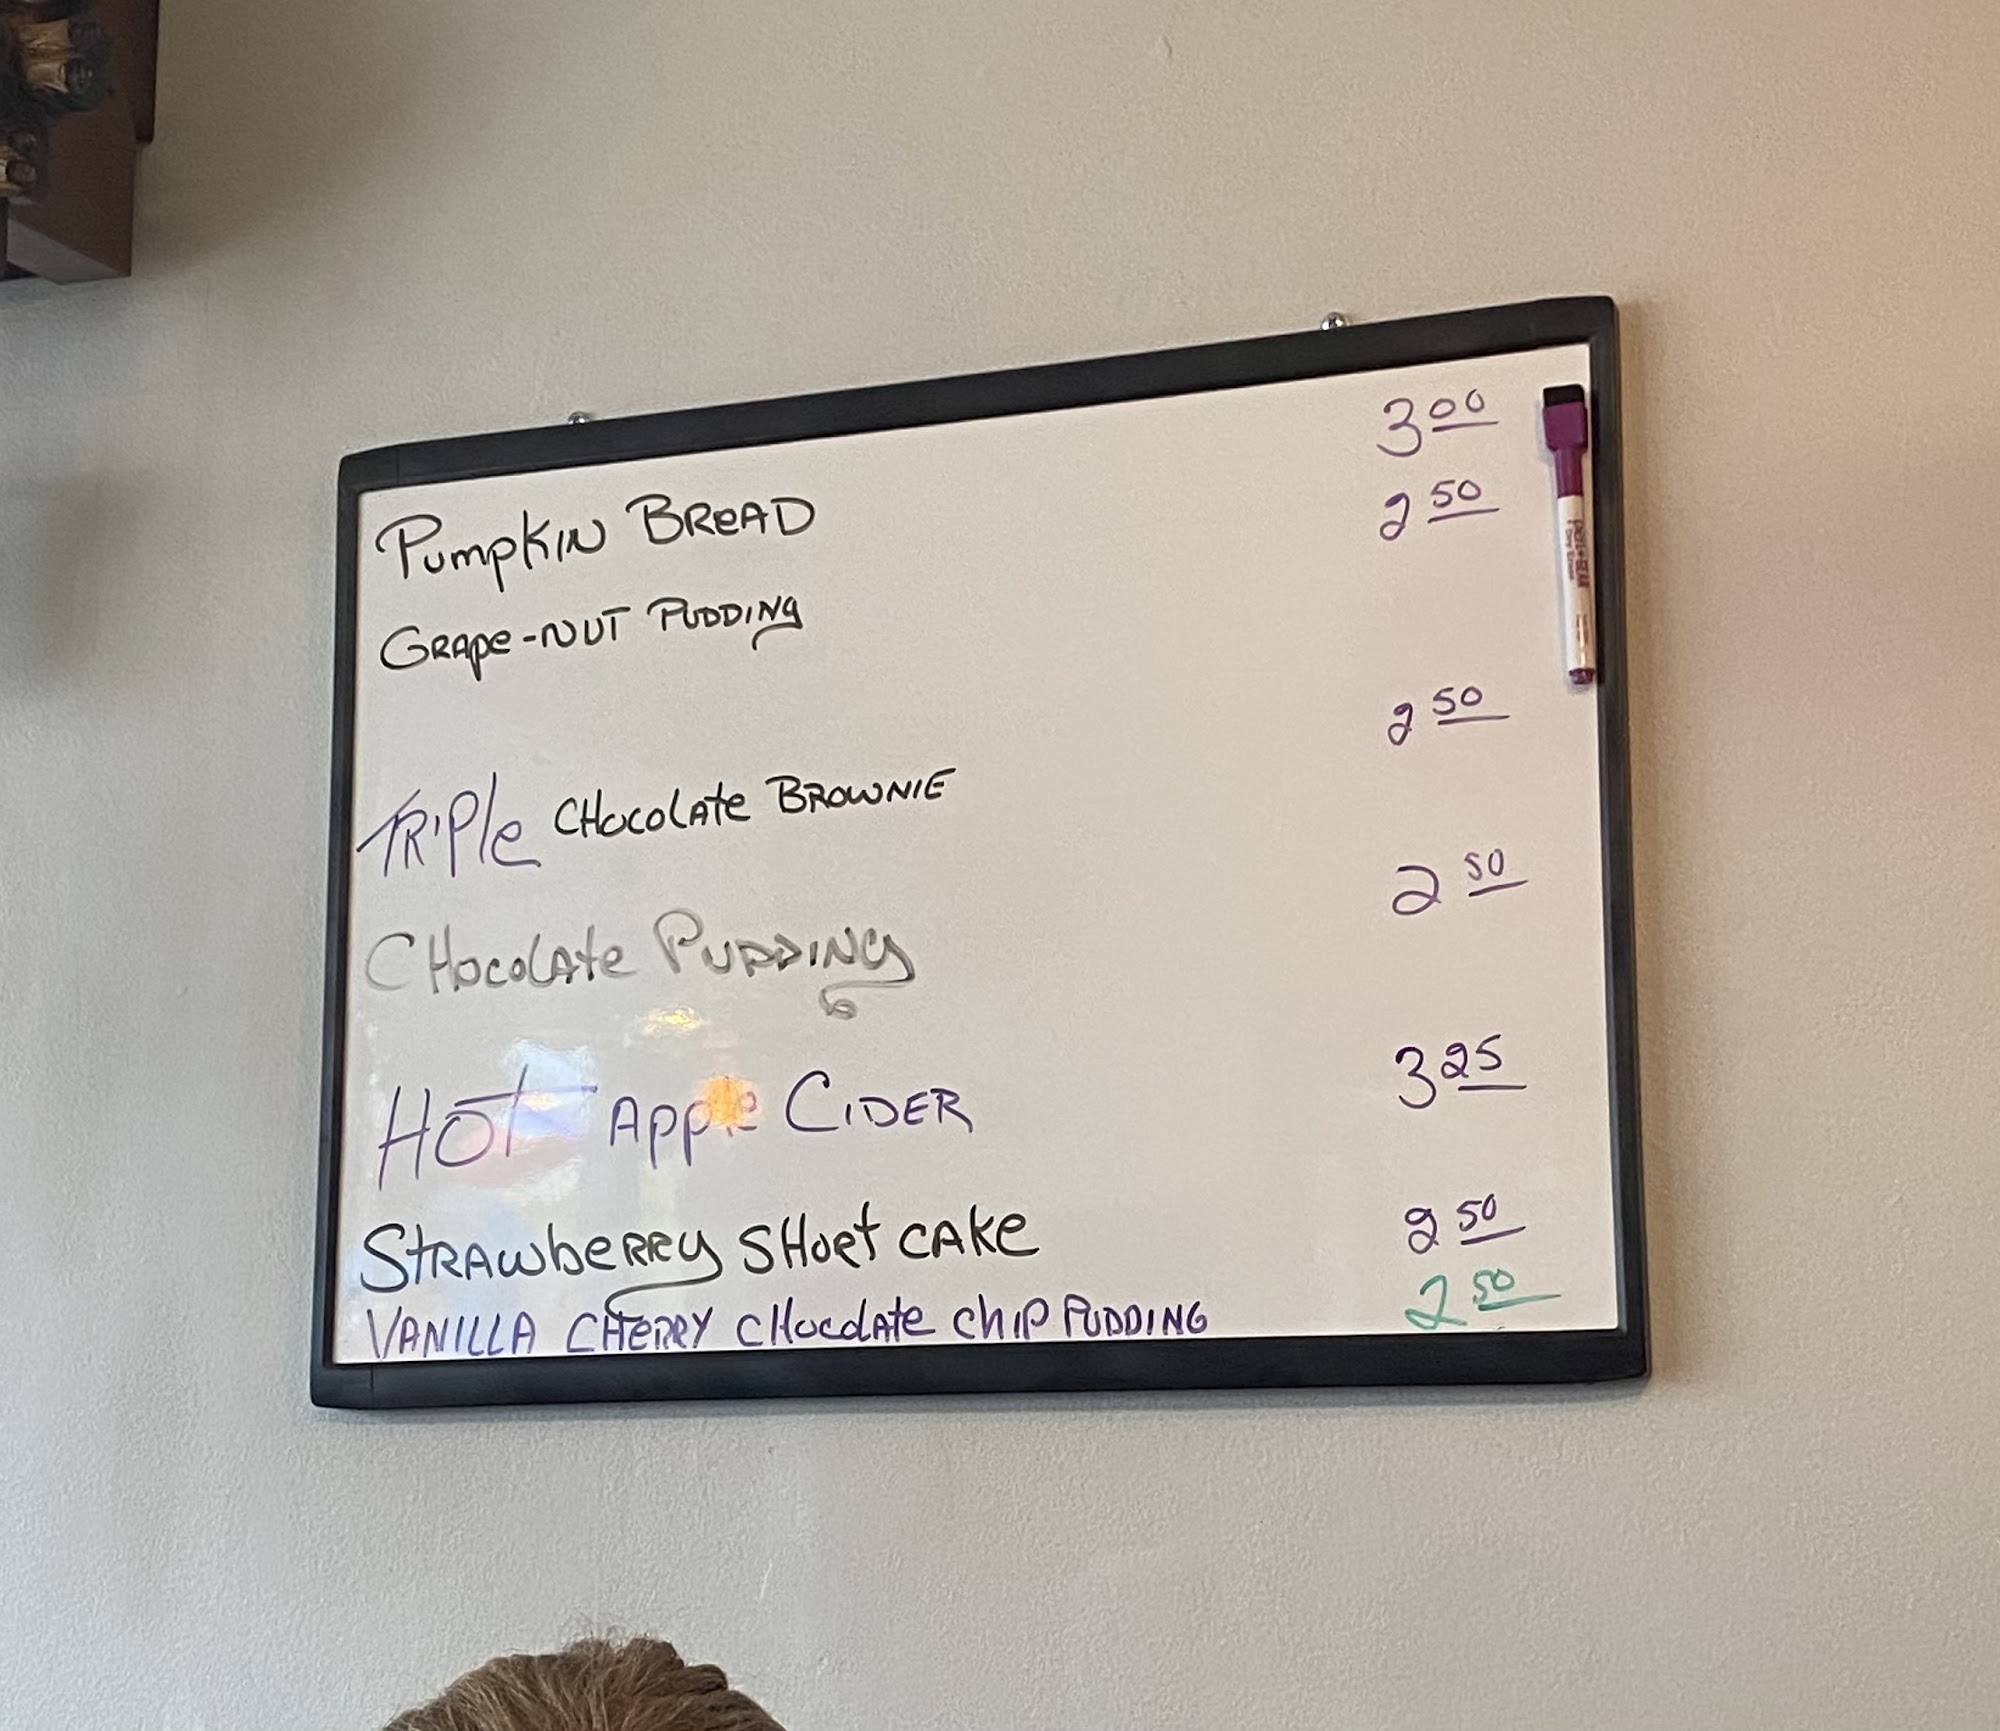 Pumpkin Bread 3.00
Grape-Nut Pudding 2.50
Triple Chocolate Brownie 2.50
Chocolate Pudding 2.50
Hot Apple Cider 3.25
Strawberry Short cake 2.50
Vanilla Cherry Chocolate Chip Pudding 2.50